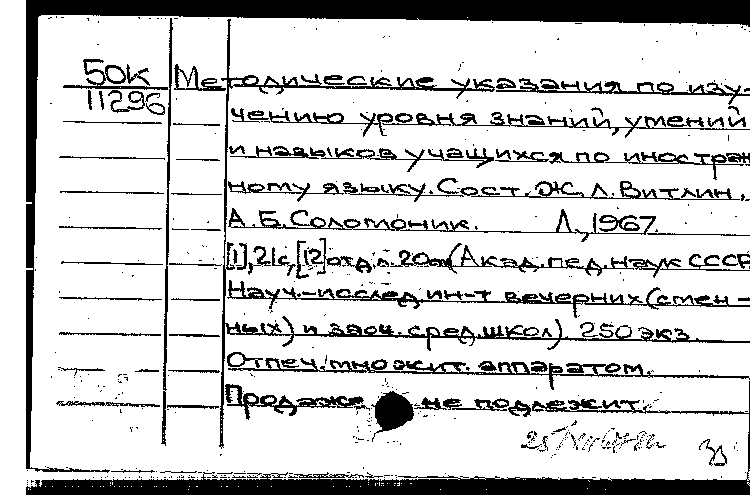 50К Методические указания по изу-
11296 чению уровня знаний, умений
и навыков учащихся по иностран
ному языку. Сост. Ж. Л. Витлин,
А. Б. Соломоник. Л., 1967.
[1], 21с, [12] отд. л. 20см (Акад. пед. наук СССР
Науч.-исслед. ин-т вечерних (смен-
ных) и заоч. сред. школ). 250 экз.
Отпеч. множит. аппаратом.
Продаже не подлежит.